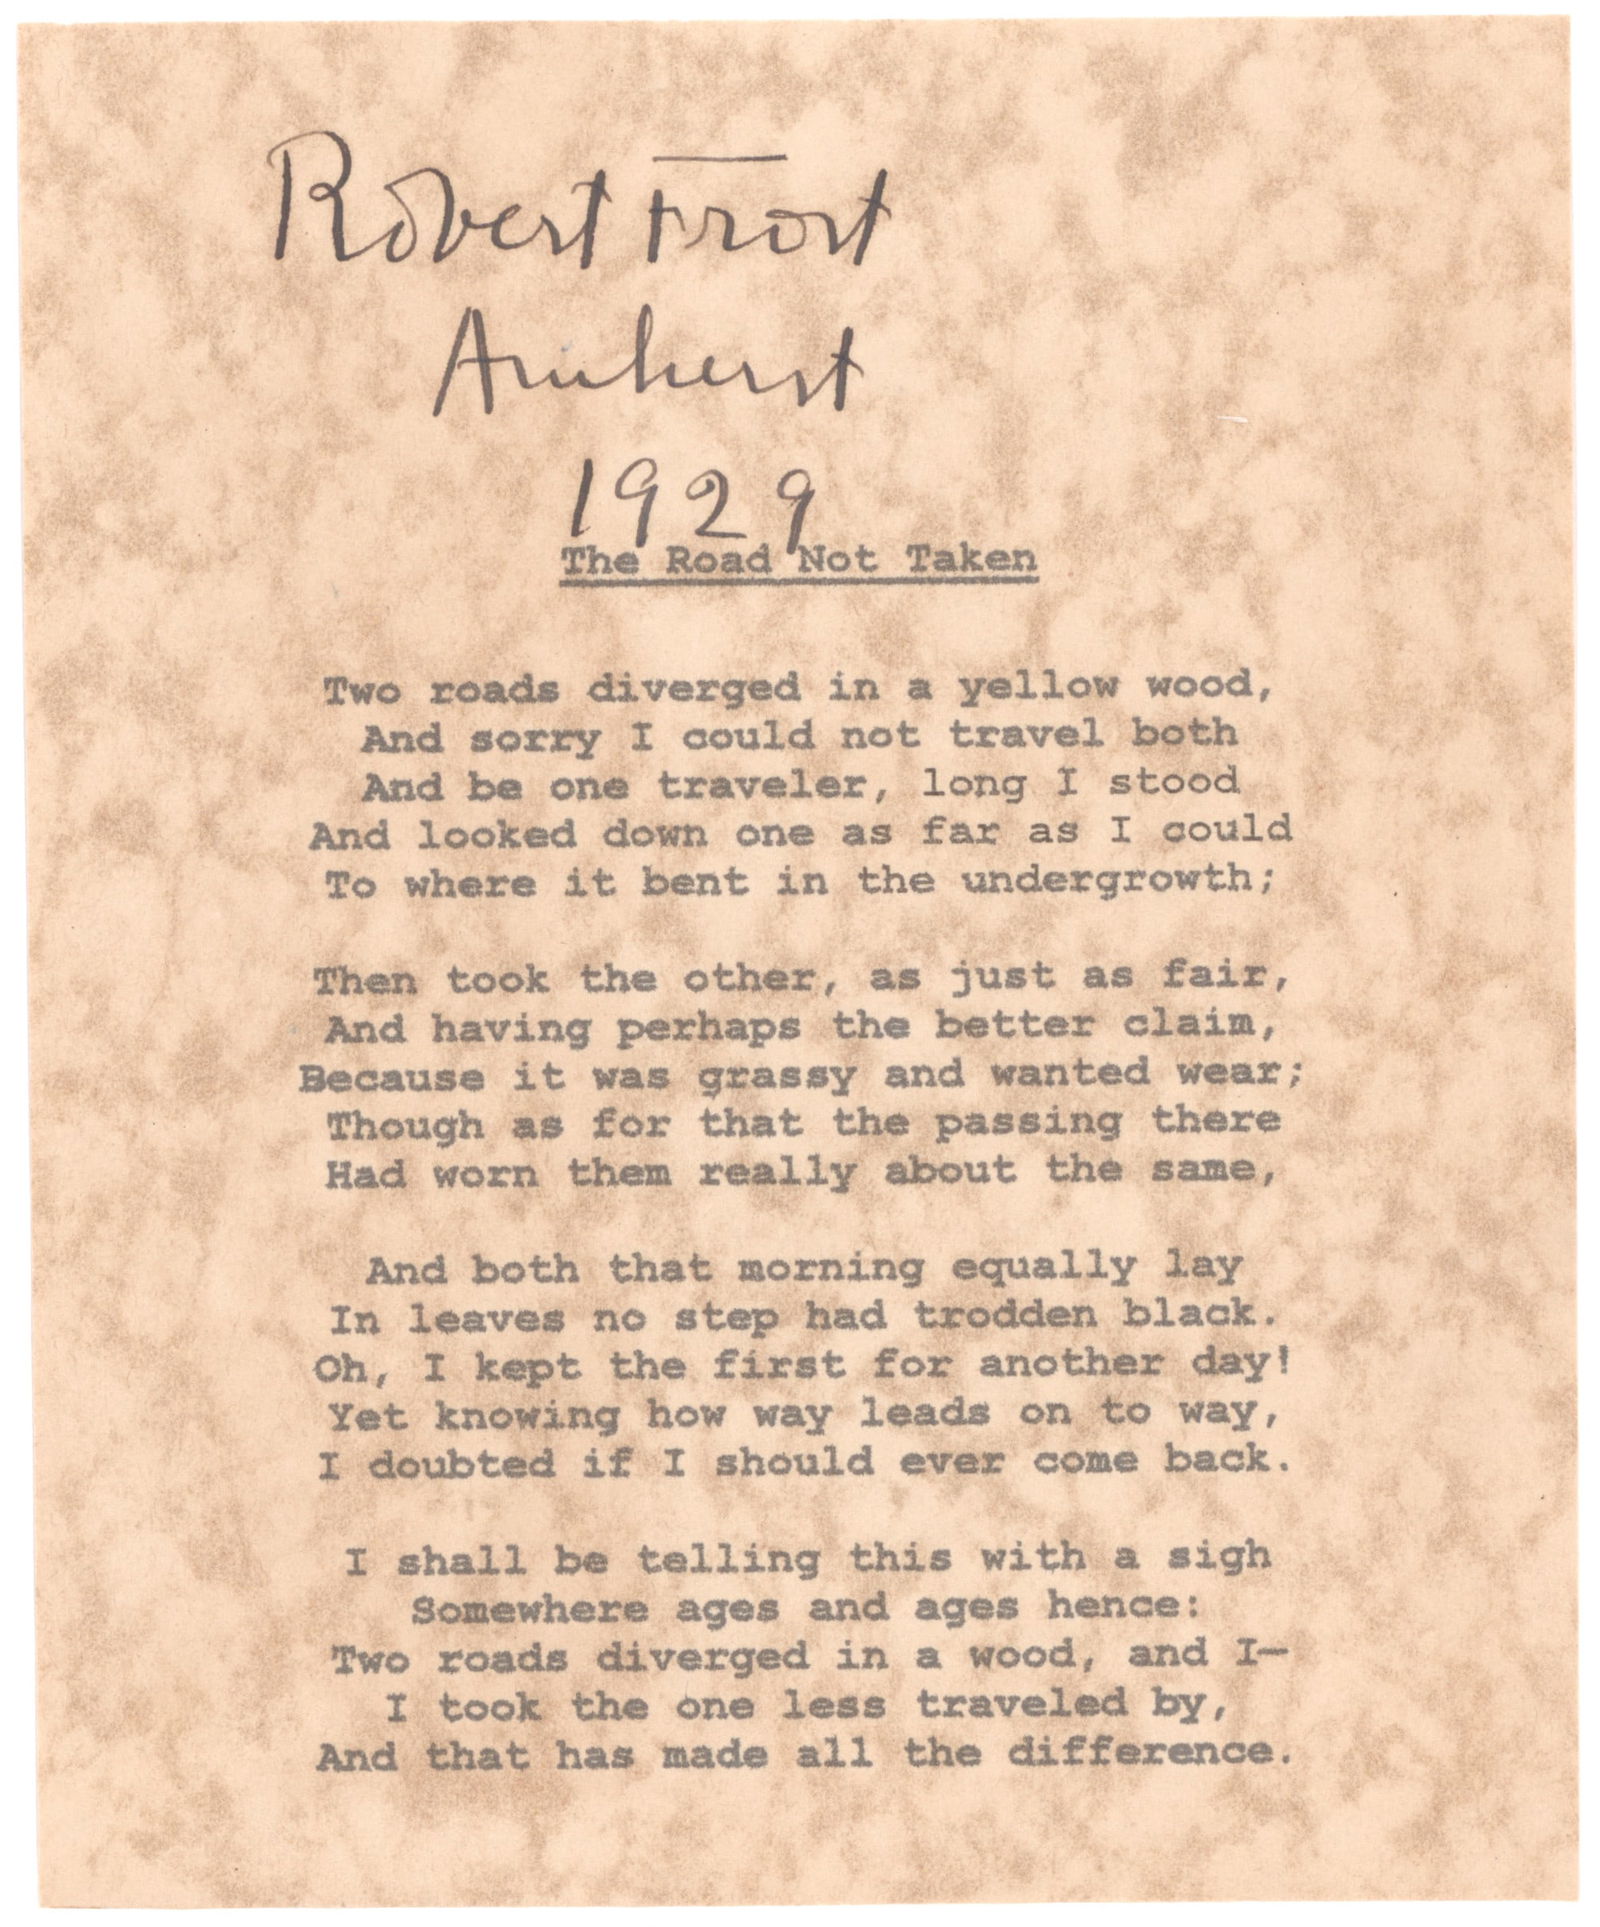 Robert Frost
Amherst
1929
The Road Not Taken
Two roads diverged in a yellow wood,
And sorry I could not travel both
And be one traveler, long I stood
And looked down one as far as I could
To where it bent in the undergrowth;
Then took the other, as just as fair,
And having perhaps the better claim,
Because it was grassy and wanted wear;
Though as for that the passing there
Had worn them really about the same,
And both that morning equally lay
In leaves no step had trodden black.
Oh, I kept the first for another day!
Yet knowing how way leads on to way,
I doubted if I should ever come back.
I shall be telling this with a sigh
Somewhere ages and ages hence:
Two roads diverged in a wood, and I—
I took the one less traveled by,
And that has made all the difference.